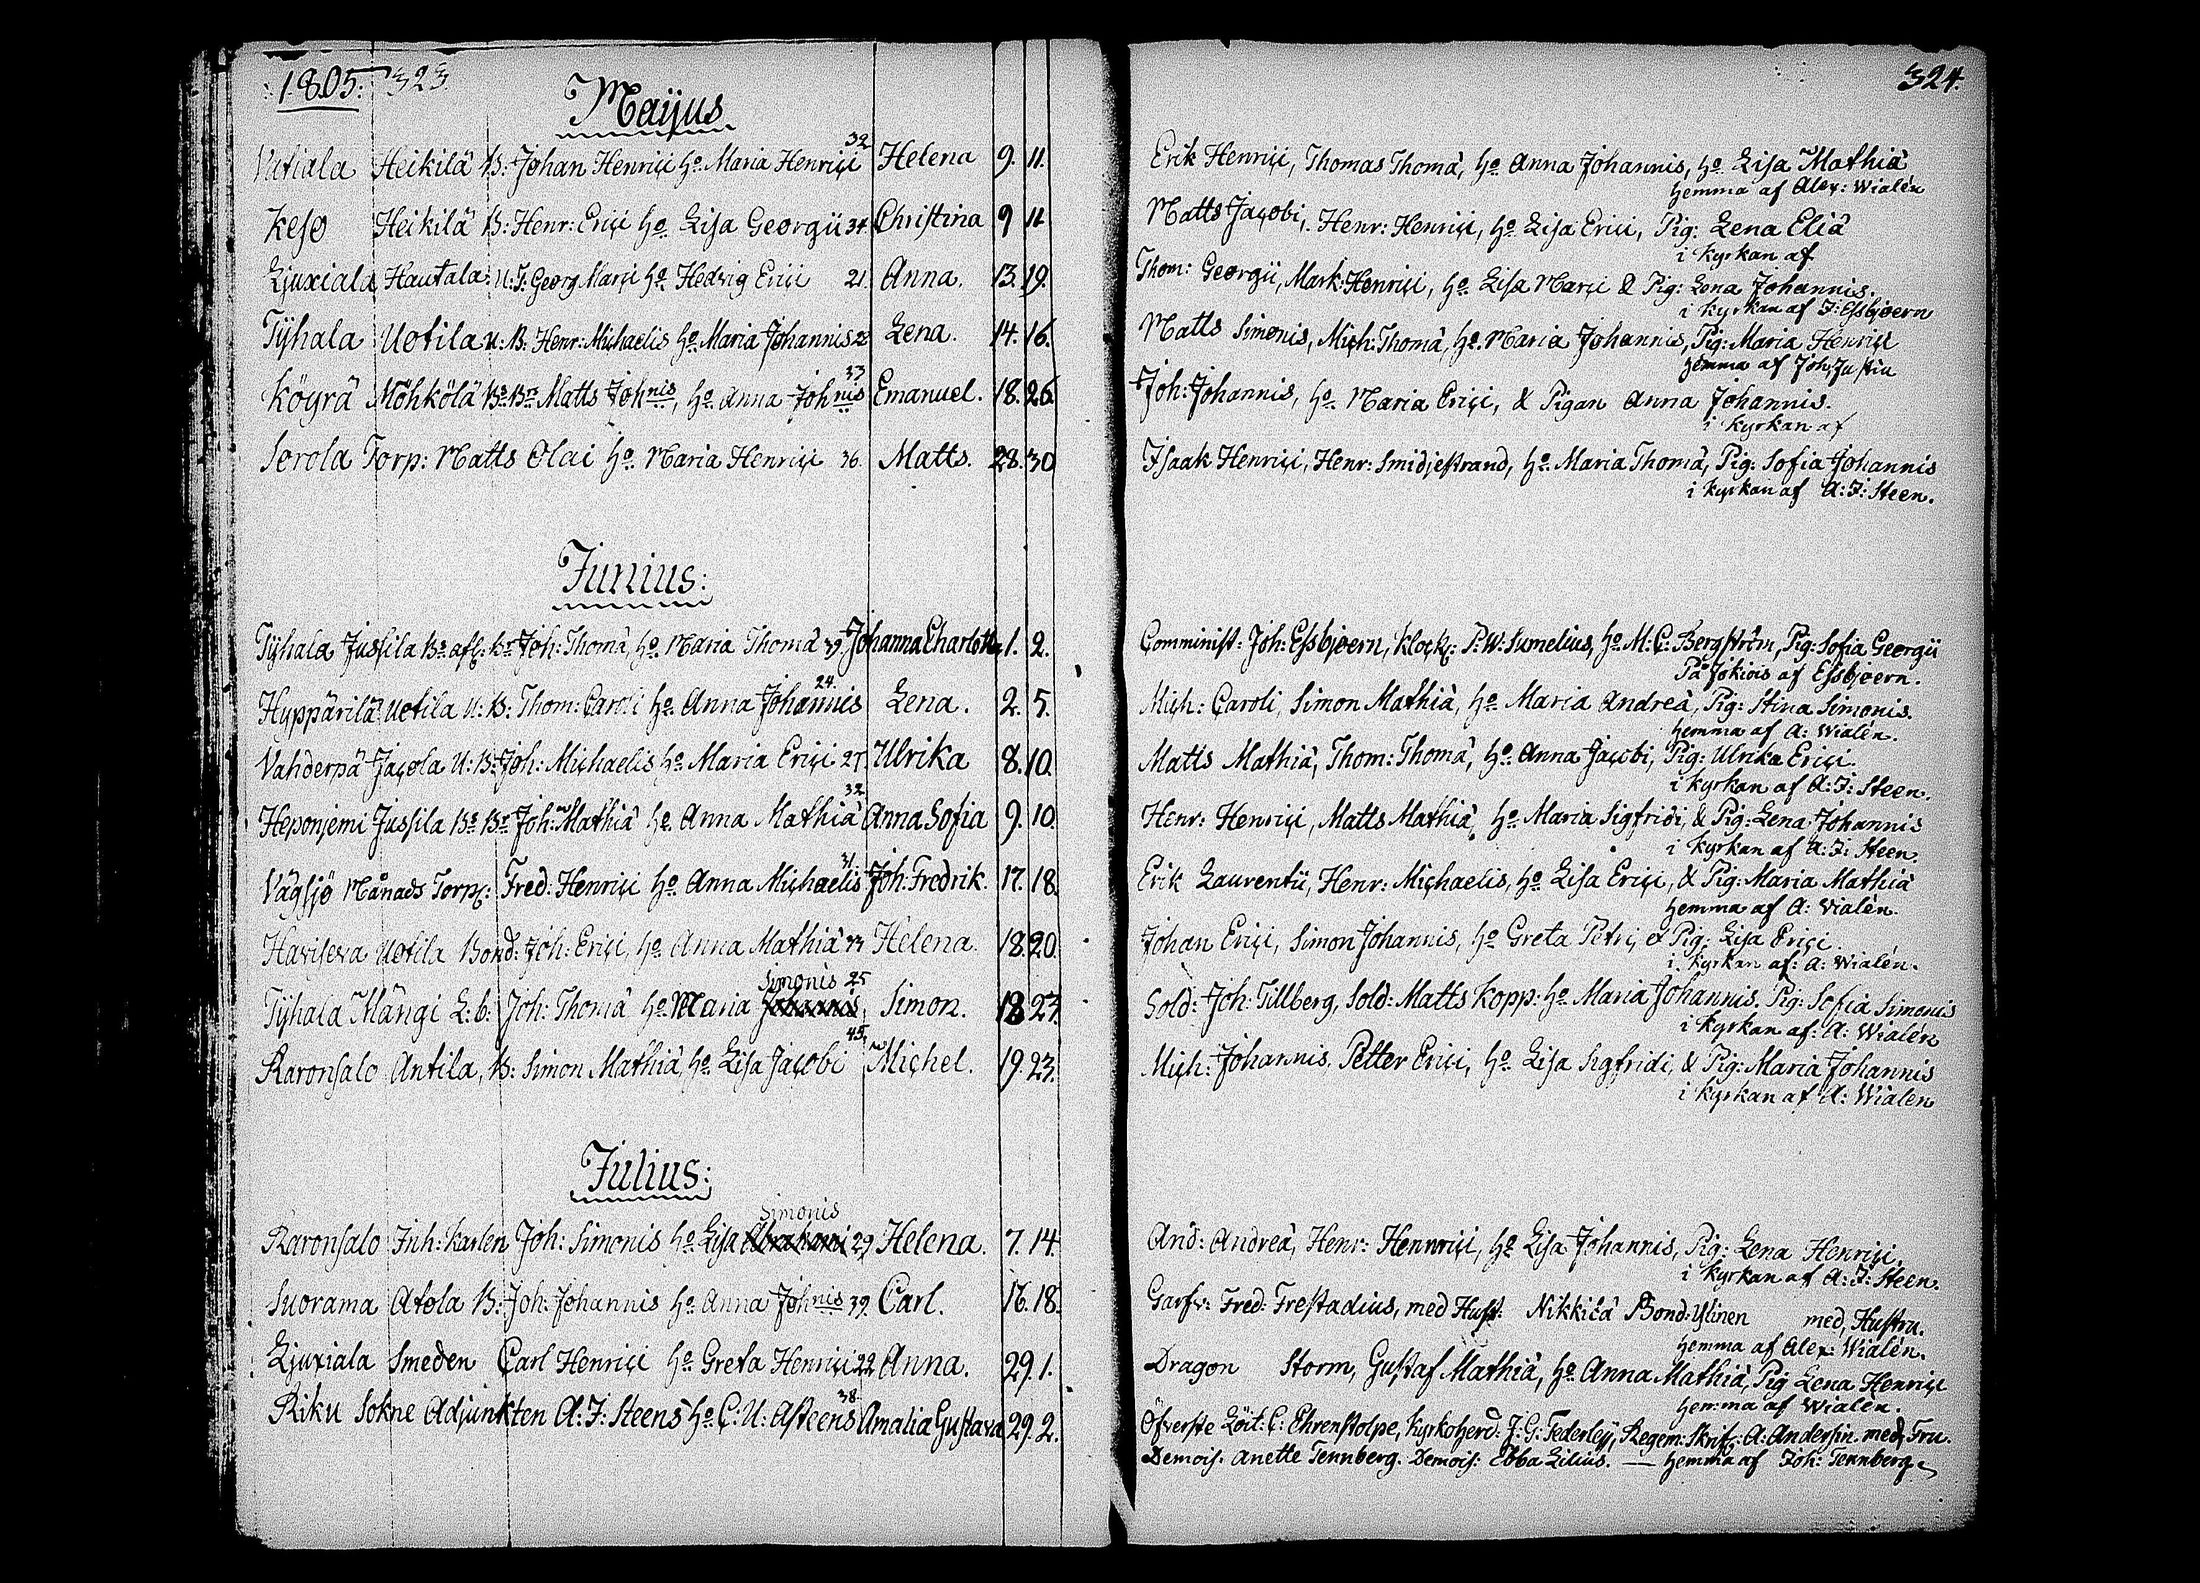 1805. 323
Maijus
Vatiala Heikilä B: Johan Henrici Ho Maria Henrici 32 Helena 9. 11.
Keso Heikilä B: Henr: Erici Ho Lisa Georgii 34 Christina 9 11
Ljuxiala Hautala: U: J: Georg Marci Ho Hedvig Erici 21. Anna. 13. 19.
Tÿhala Uotila U: B: Henr: Michaelis Ho Maria Johannis Lena. 14. 16.
Köyrä Möhkölä Bo Br Matts Johnis, Ho Anna Johnis 33 Emanuel. 18. 26.
Sorola Torp: Matts Olai Ho Maria Henrici 36. Matts. 28. 30
Junius:
Tÿhala Jussila Bo afl: Br Joh: Thomæ, Ho Maria Thomæ 39. Johanna Charlotta 1. 2.
Hyppärilä Uotila U: B: Thom: Caroli Ho Anna Johannis 24. Lena. 2. 5.
Vahderpä Jacola U: B: Joh: Michaelis Ho Maria Erici 27 Ulrika 8. 10.
Heponjemi Jussila Bo Br Joh: Mathiæ Ho Anna Mathiæ 32 Anna Sofia 9. 10.
Vägsjö Månads Torp: Fred. Henrici Ho Anna Michaelis 31. Joh: Fredrik. 17. 18.
Haviseva Uotila Bond: Joh: Erici, Ho Anna Mathiæ Helena. 18. 20.
Simonis 25
Tÿhala Mängi L: b: Joh: Thomæ Ho Maria Johannis Simon. 18 23.
Raronsalo Antila, B: Simon Mathiæ, Ho Lisa Jacobi 45. Michel. 19. 23.
Julius:
Simonis
Raronsalo Inh: Karlen Joh: Simonis Ho Lisa Abrahami 29 Helena. 7. 14.
Suorama Atola B: Joh: Johannis Ho Anna Johnis 39. Carl. 16. 18.
Ljuxiala Smeden Carl Henrici Ho Greta Henrici 22 Anna. 29. 1.
Riku Sokne Adjunkten A: J: Steens Ho C: U: Asteens 38. Amalia Gustava 29. 2.
324.
Erik Henrici, Thomas Thomæ, Ho Anna Johannis, Ho Lisa Mathiæ
hemma af Alex: Wialén
Matts Jacobi, Henr: Henrici, Ho Lisa Erici, Pig: Lena Eliæ
i Kyrkan af
Thom: Georgii, Mark: Henrici, Ho Lisa Marci & Pig: Lena Johannis.
i Kyrkan af J: Essbjoern
Matts Simonis, Mich: Thomæ, Ho Maria Johannis, Pig: Maria Henrici
hemma af Joh: Justin
Joh: Johannis, Ho Maria Erici, & Pigan Anna Johannis.
i Kyrkan af
Isaak Henrici, Henr: Smidjestrand, Ho Maria Thomæ, Pig: Sofia Johannis
i Kyrkan af A: J: Steen.
Comminist: Joh: Essbjoern, Klock: P: W: Sumelius, Ho M: C: Bergström, Pig: Sofia Georgii
På Jokiois af Essbjoern.
Mich: Caroli, Simon Mathiæ, Ho Maria Andreæ, Pig: Stina Simonis.
hemma af A: Wialén.
Matts Mathiæ, Thom: Thomæ, Ho Anna Jacobi, Pig: Ulrika Erici.
i Kyrkan af A: J: Steen.
Henr: Henrici, Matts Mathiæ, Ho Maria Sigfridi, & Pig: Lena Johannis
i Kyrkan af A: J: Steen.
Erik Laurentii, Henr: Michaelis, Ho Lisa Erici, & Pig: Maria Mathiæ
hemma af A: Wialén.
Johan Erici, Simon Johannis, Ho Greta Petri, & Pig: Lisa Erici.
i Kyrkan af: A: Wialén.
Sold: Joh: Tillberg, Sold: Matts Kopp: Ho Maria Johannis. Pig: Sofia Simonis
i Kyrkan af: A: Wialén
Mich: Johannis. Petter Erici, Ho Lisa Sigfridi, & Pig: Maria Johannis
i Kyrkan af A: Wialén
And: Andreæ, Henr: Hennrici, Ho Lisa Johannis, Pig: Lena Henrici.
i Kyrkan af A: J: Steen.
Garfv: Fred: Frestadius, med Hust: Nikkilä Bond: Ylinen med, Hustru.
hemma af Alex: Wialén.
Dragon Storm, Gustaf Mathiæ, Ho Anna Mathiæ, Pig Lena Henrici
hemma af Wialén.
Öfverste Löit: C: Ehrenstolpe, Kyrkoherd: J: G: Federleÿ, Regem: Skrif: A: Andersin med Fru.
Demois. Anette Tennberg. Demois: Ebba Lilius. — hemma af Joh: Tennberg.